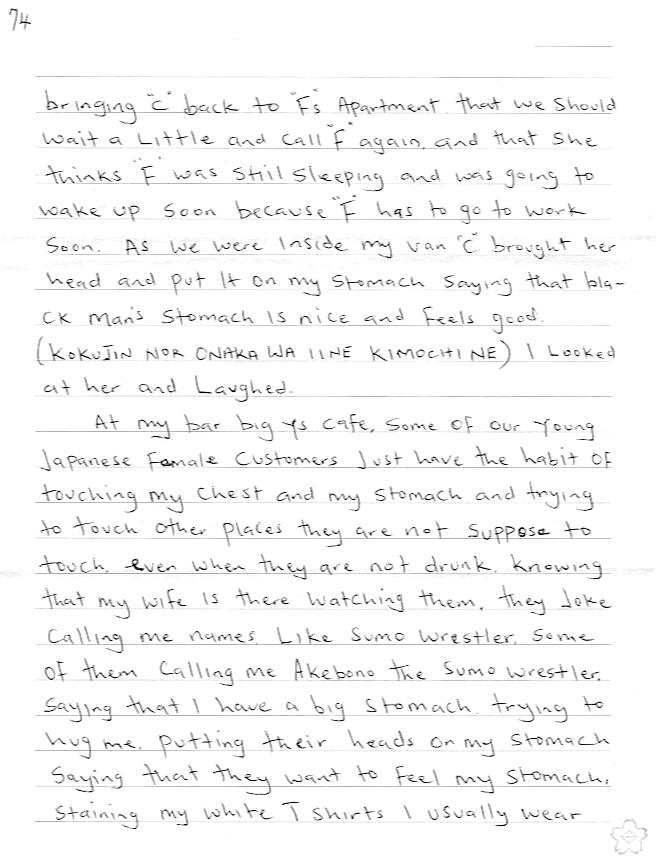 74
bringing "C" back to "F's" Apartment. that we should
wait a Little and call "F" again, and that she
thinks "F" was still sleeping and was going to
wake up soon because "F" has to go to work
soon. As we were Inside my van "C" brought her
head and put It on my stomach saying that bla-
ck man's stomach Is nice and feels good.
(KOKUJIN NOR ONAKA WA IINE KIMOCHI NE) I Looked
at her and Laughed.
At my bar big ys cafe, some of our young
Japanese Female customers Just have the habit of
touching my chest and my stomach and trying
to touch other places they are not suppose to
touch, even when they are not drunk. knowing
that my wife Is there watching them, they Joke
calling me names. Like sumo wrestler, some
of them calling me Akebono the sumo wrestler,
saying that I have a big stomach. trying to
hug me, putting their heads on my stomach
saying that they want to feel my stomach,
staining my white T shirts I usually wear